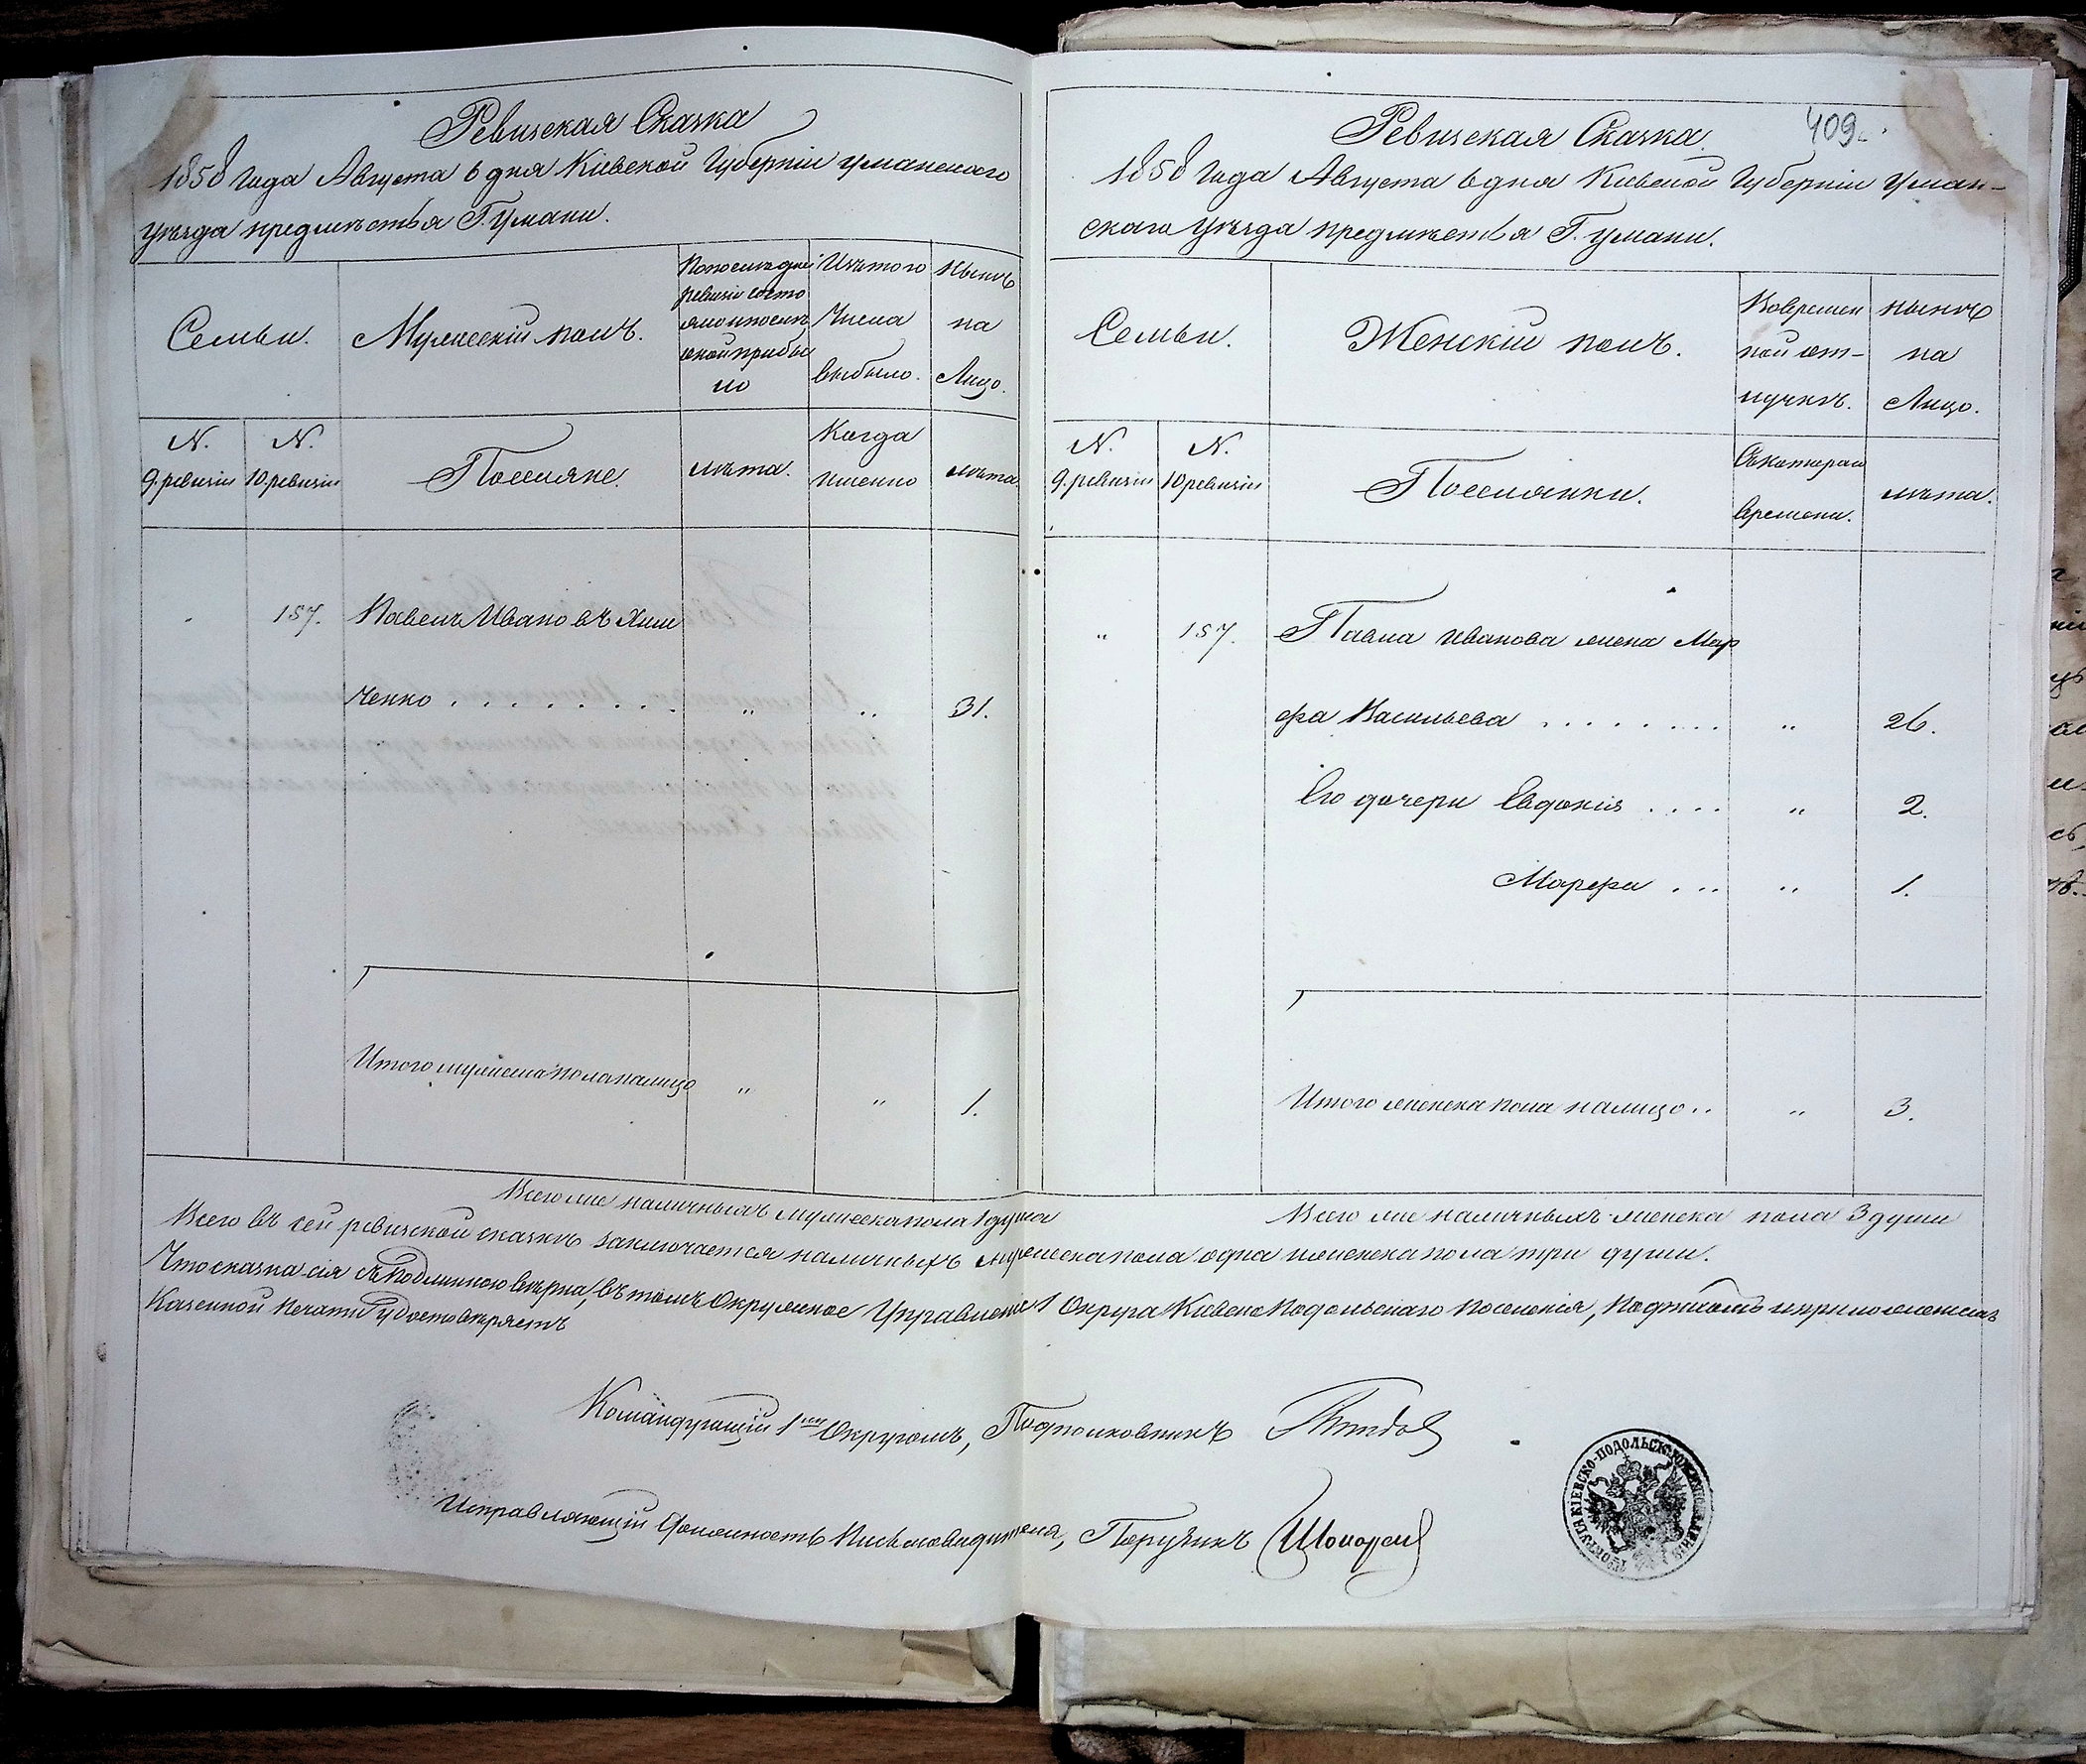 Ревизская Сказка
1858 года Августа 6 дня Кіевской Губерніи Уманского
уѣзда предмѣстья Г. Умани.
Семьи.
Мужескій полъ.
По последней
ревизіи состо
яло и после
оной прибы
ло
Изъ того
Числа
выбыло.
Нынѣ
на
Лицо.
N.
9. ревизіи
N.
10 ревизіи
Поселяне.
лѣта.
Когда
именно
лѣта
157.
Павелъ Ивановъ Хим
ченко
"
"
31.
Итого мужеска пола налицо
"
"
1.
Всего же наличныхъ мужеска пола 1 душа
409.
Ревизская Сказка.
1858 года Августа 6 дня Кіевской Губерніи Уман-
скаго уѣзда предмѣстья Г. Умани.
Семьи.
Женскій полъ.
Во времен
ной от-
лучкѣ.
нынѣ
на
Лицо.
N.
9. ревизіи
N.
10 ревизіи
Поселянки.
Съ котораго
времени.
лѣта.
"
157.
Павла Иванова жена Мар
фа Васильева
"
26.
Его дочери Евдокія
"
2.
Марфа
"
1.
Итого женска пола налицо
"
3.
Всего же наличныхъ женска пола 3 души
Всего въ сей ревизской сказкѣ заключается наличныхъ мужеска пола одна и женска пола три души.
Что сказка сія съ подлинною вѣрна, въ томъ Окружное Управленіе 1 Округа Кіевско Подольскаго поселенія, подписомъ и приложеніемъ
Казенной печати удостовѣряетъ
Командующій 1мъ Округомъ, Подполковникъ
Исправляющій должность Письмоводителя, Поручикъ